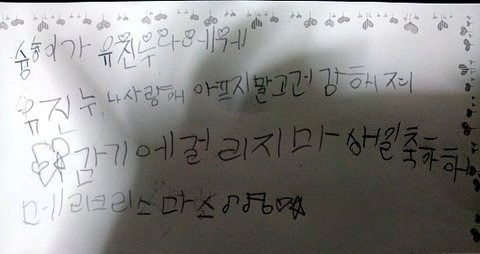 유진누나에게
유진누나사랑해 아프지말고건강해져
감기에걸리지마 생일축하해
메리크리스마스